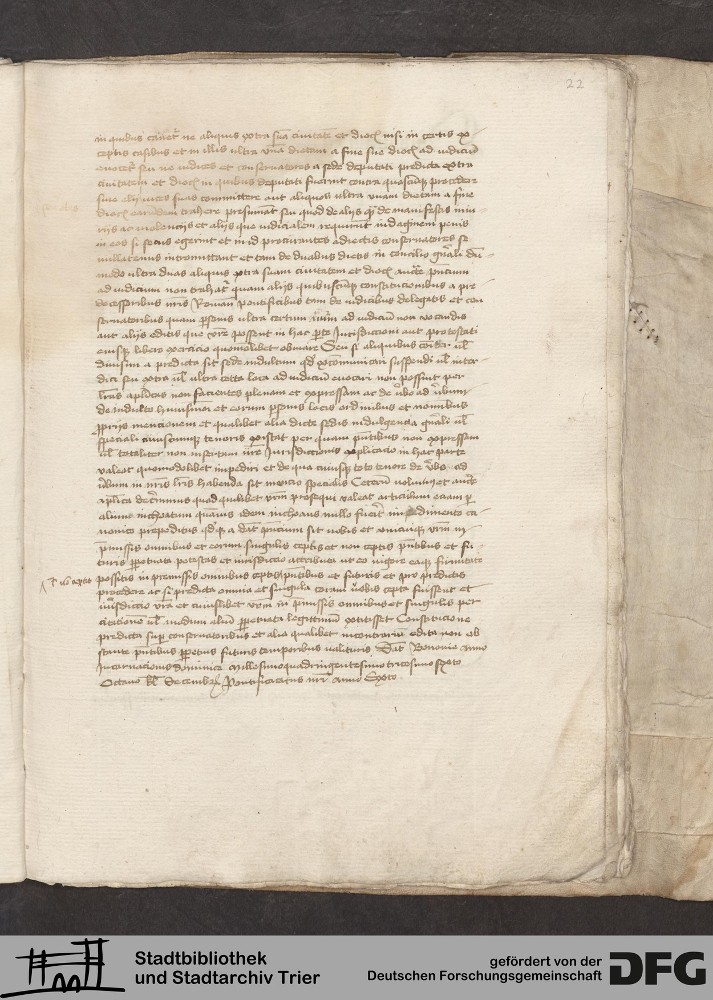 22
in quibus cavetr ne aliquis extra suā civitatē et dioc nisi in certis ex
ceptis casibus et in illis ultra unā dietam a fine sue dioc ad iudiciū
evocetr seu ne iudices et conservatores a sede deputati predicta extra
civitatem et dioc in quibus deputati fuerint contra quoscūqȝ procedere
sive alij vices suas committere aut aliquos ultra unam dietam a fine
dioc earundem trahere presumāt seu quod de alijs qȝ de manifestis iniu
rijs ac violencijs et alijs que iudicialem requirūt indaginem penis
in eos si secus egerint et in id procurantes adiectis conservatores se
nullatenus intromittant et tam de duabus dietis in concilio gn̄ali dū
modo ultra duas aliquis extra suam civitatem et dioc auctē pn̄cium
ad iudicium non trahatr quam alijs quibuscūqȝ constitucionibus a pre
decessoribus nr̄is Roman pontificibus tam de iudicibus delegatis et con
servatoribus quam psonis ultra certum nūm ad iudiciū non vocandis
aut alijs editis que vr̄e possent in hac pte Iurisdictioni aut potestati
eiusqȝ libero exercicio quomolibet obviare Seu si aliquibus cōiter ul
divisim a predicta sit sede indultum qd excommunicari suspendi ul inter
dici seu extra ul ultra certa loca ad iudiciū evocari non possint per
lr̄as aplicas non facientes plenam et expressam ac de vbo ad vbum
de indulto huiusmoi et eorum psonis locis ordinibus et nominibus
pprijs mencionem et qualibet alia dicte sedis indulgencia gn̄ali ul
speciali cuiuscumqȝ tenoris existat per quam pn̄tibus non expressam
ul totaliter non insertam vr̄e Iurisdictionis explicacio in hac parte
valeat quomodolibet impediri et de qua cuiusqȝ toto tenore de vbo ad
vbum in nr̄is lr̄is habenda sit mencio specialis Ceterū volumus et auctē
aplica decernimus quod quilibet vrm̄ prosequi valeat articulum eciam p
alium inchoatum quamvis idem inchoans nullo fuerit impedimento ca
nonico prepeditus qdqȝ a dat pn̄cium sit vobis et unicuiqȝ vrm̄ in
pmissis omnibus et eorum singulis ceptis et non ceptis pn̄tibus et fu
turis ppetuata potestas et iurisdictio attributa ut eo vigore eaqȝ firmitate
possitis in premissis omnibus ceptis pn̄tibus et futuris et pro predictis
procedere ac si predicta omnia et singula coram vobis cepta fuissent et
iurisdictio vr̄a et cuiuslibet vrm̄ in pmissis omnibus et singulis per
citacionē ul modum aliū ppetuata legittimū extitisset Constitucione
predicta sup conservatoribus et alia qualibet incontrariū edita non ob
stante pn̄tibus ppetuis futuris temporibus valituris Dat Bononie Anno
Incarnacionis dominice Millesimoquadringentesimotricesimo sexto
Octavo kl Decembr Pontificatus nr̄i Anno Sexto
Stadtbibliothek
und Stadtarchiv Trier
gefördert von der
Deutschen Forschungsgemeinschaft
DFG